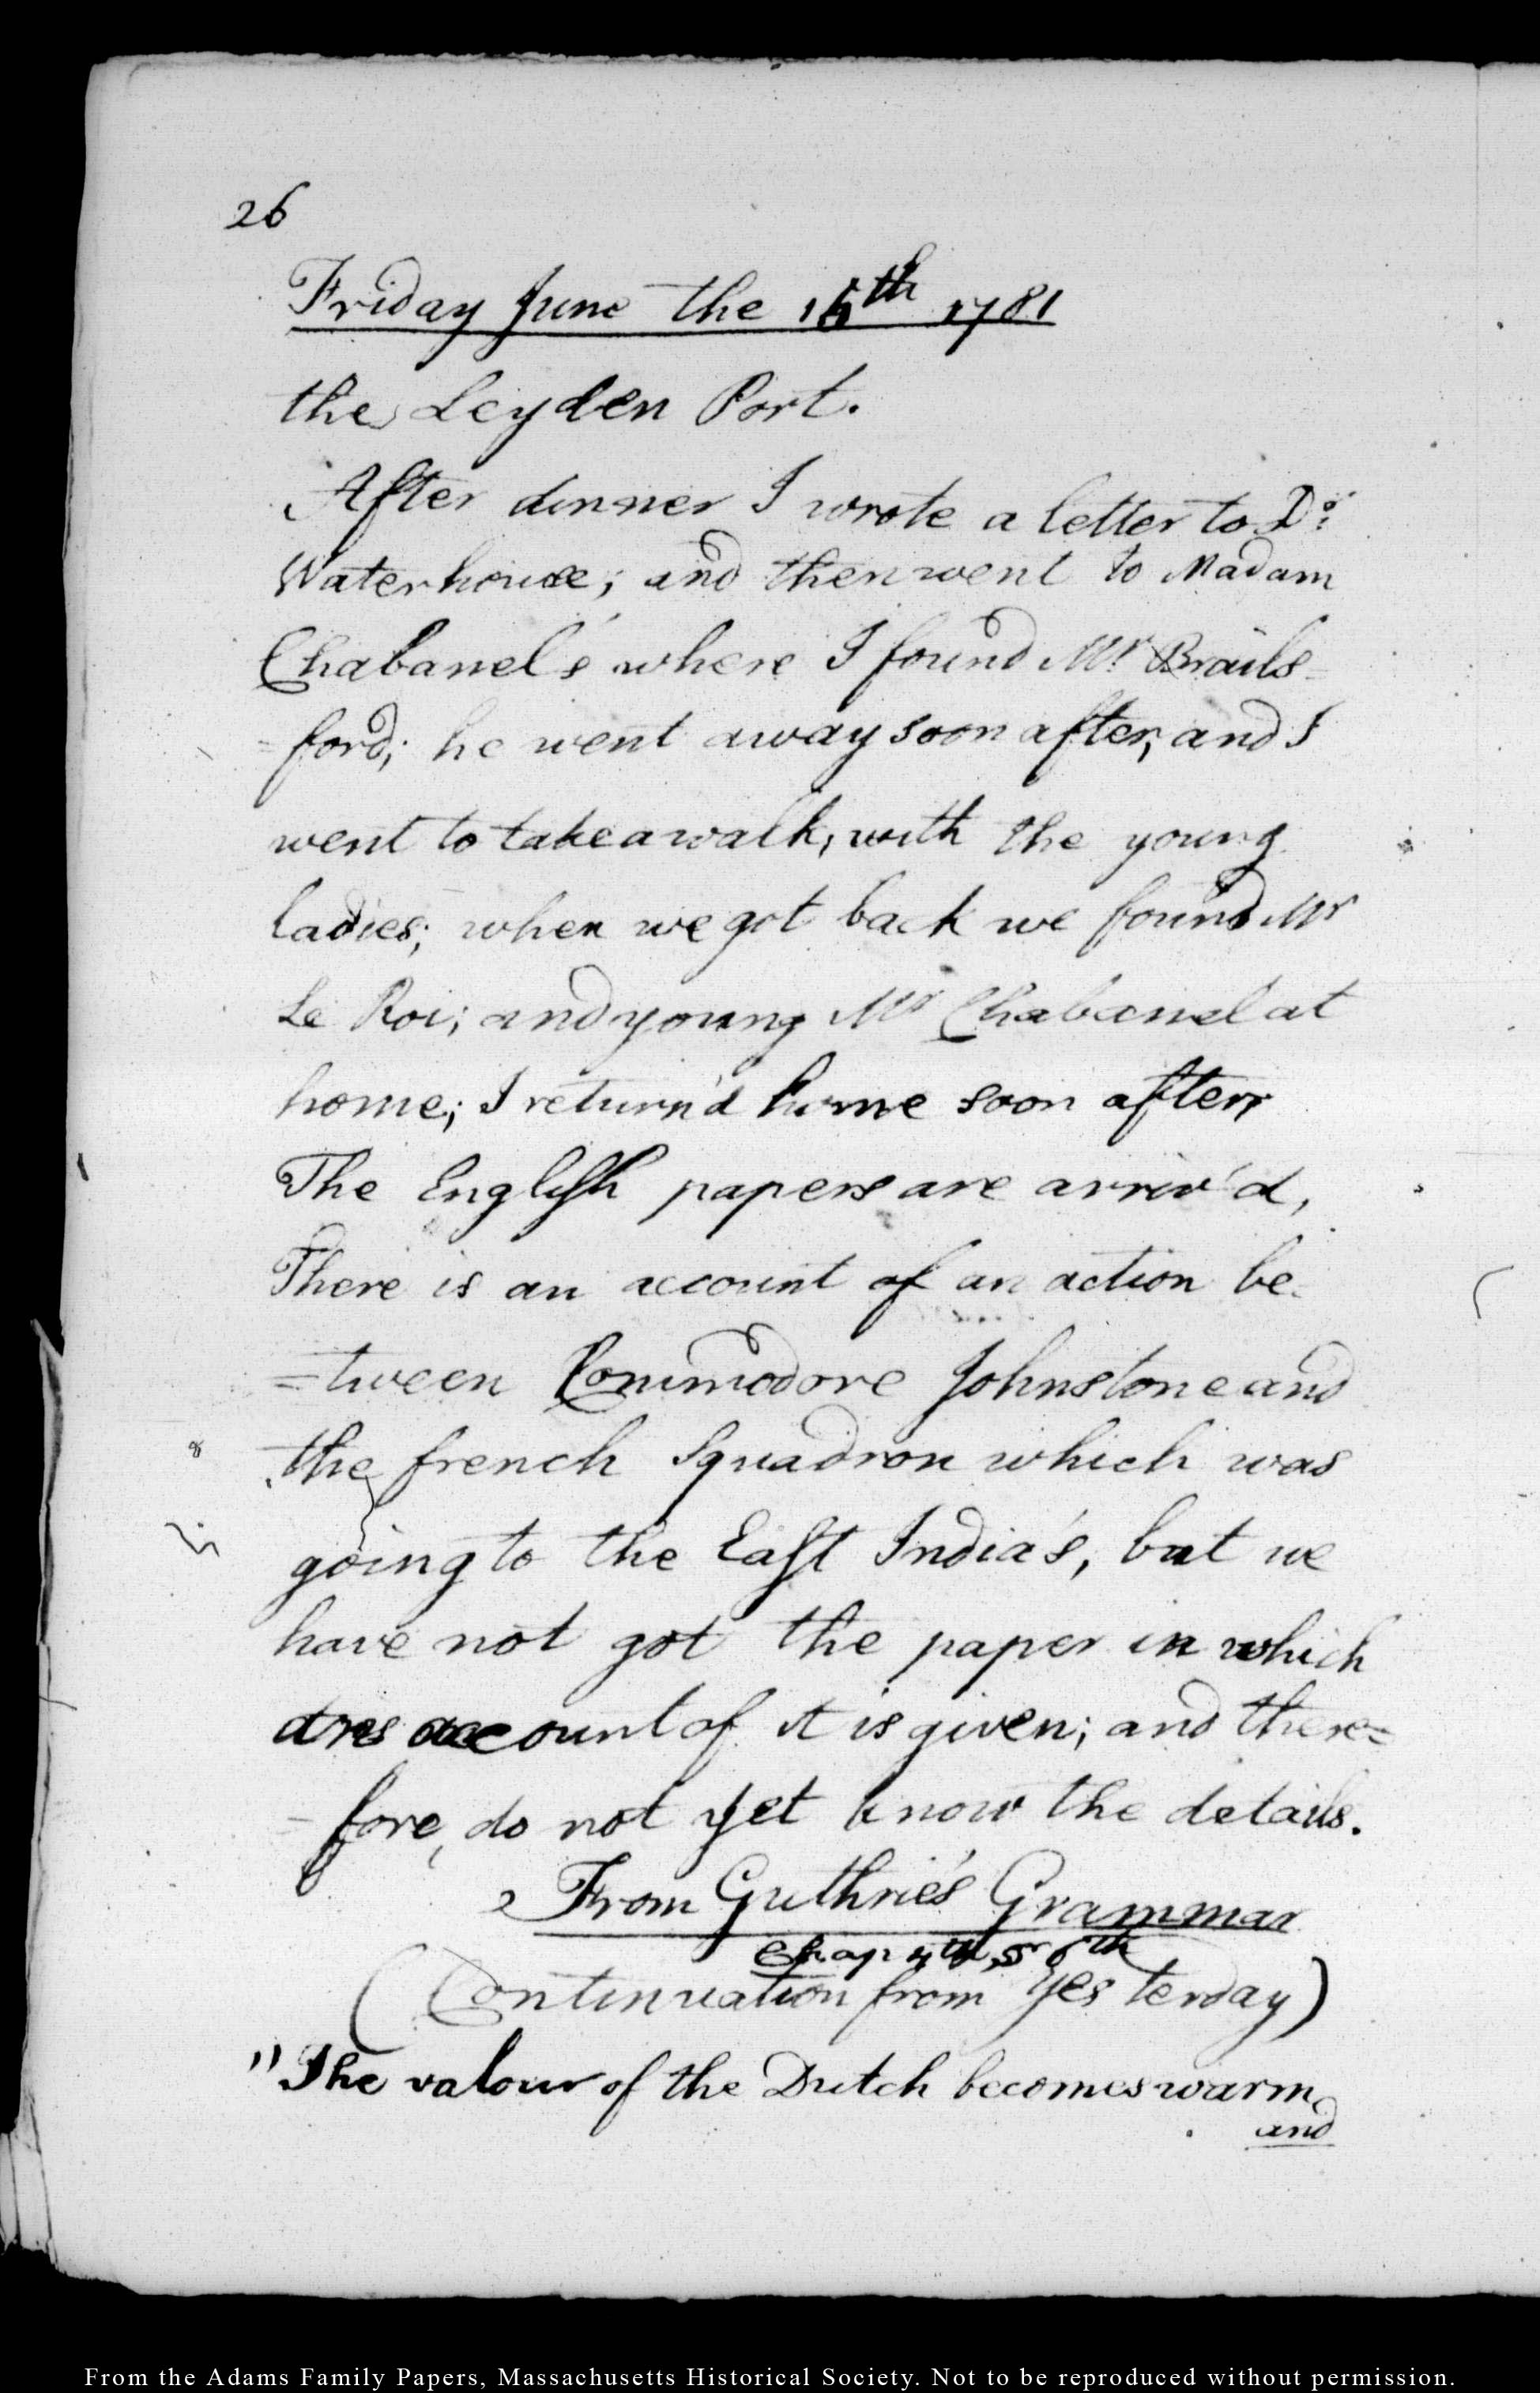 26
Friday June the 15th 1781
the Leyden Port.
After dinner I wrote a letter to Dr:
Waterhouse; and then went to Madam
Chabanel's where I found Mr. Brails-
=ford; he went away soon after, and I
went to take a walk, with the young
ladies; when we got back we found Mr
Le Roi; and young Mr Chabanel at
home; I return'd home soon after,
The English papers are arriv'd,
There is an account of an action be-
=tween Commodore Johnstone and
the french Squadron which was
going to the East India's, but we
have not got the paper in which
account of it is given; and there=
-fore, do not yet know the details.
2 From Guthrie's Grammar
Chap 4th, 5 6th
(Continuation from Yesterday)
"The valour of the Dutch becomes warm
and
From the Adams Family Papers, Massachusetts Historical Society. Not to be reproduced without permission.